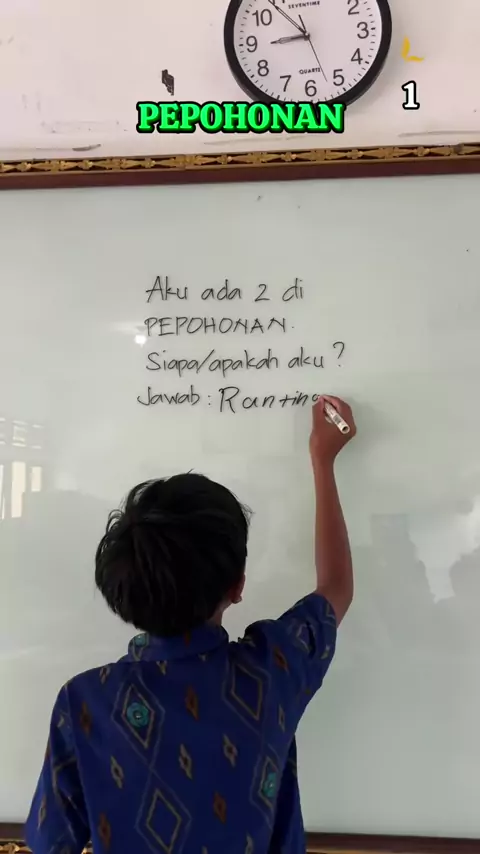 SEVENTIME
10
2
9
3
8
4
7
6
5
QUARTZ
1
PEPOHONAN
Aku ada 2 di
PEPOHONAN.
Siapa/apakah aku?
Jawab: Ranting